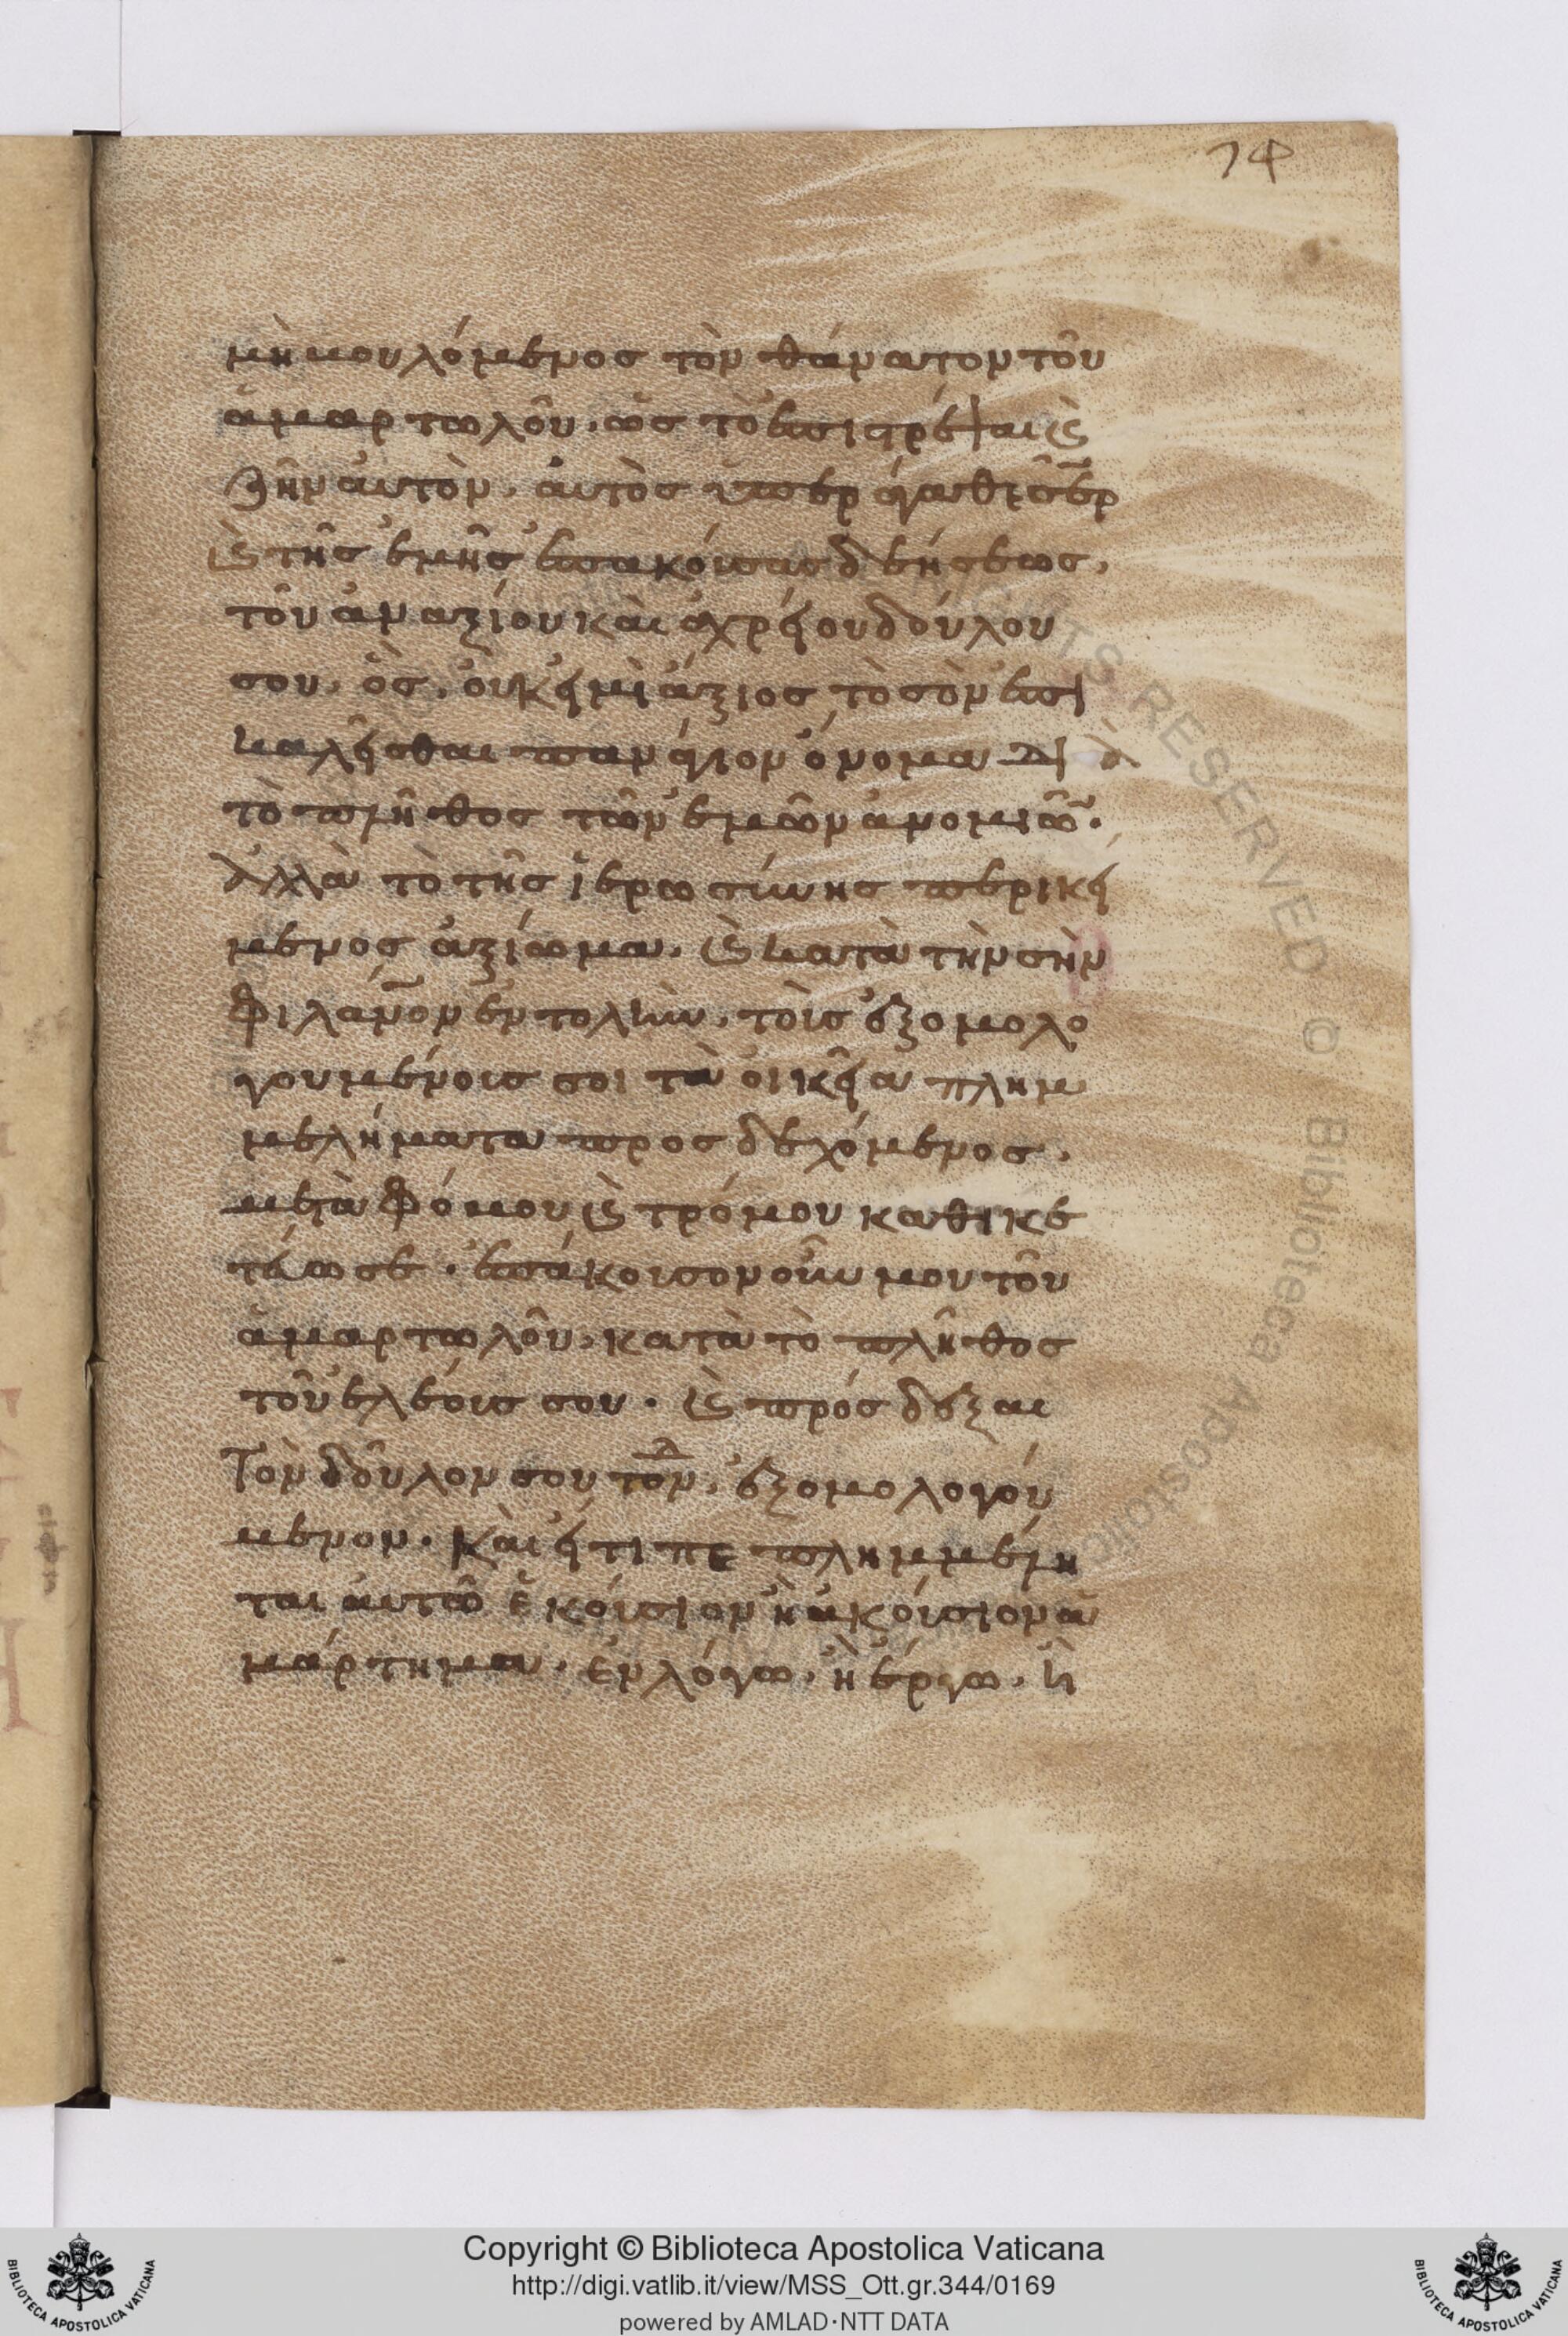 74
μὴ βουλόμενος τὸν θάνατον τοῦ
ἁμαρτωλοῦ. ὡς τὸ ἐπιστρέψαι (καὶ)
ζῆν αὐτὸν. αὐτὸς ὑπὲρ
(καὶ) τῆς ἐμῆς ἐπακούσας δεήσεως.
τοῦ ἀναξίου καὶ ἀχρείου δούλου
σου. ὃς. οὐκ εἰμὶ ἄξιος τὸ σὸν ἐπι
καλεῖσθαι πανάγιον ὄνομα διὰ
τὸ πλῆθος τῶν ἐμῶν ἀνομιῶν.
ἀλλὰ τὸ τῆς ἱερωσύνης περικεί
μενος ἀξίωμα. (καὶ) κατὰ τὴν σὴν
φιλάνον ἐντολὴν. τοῖς ἐξομολο
γουμένοις σοι τὰ οἰκεῖα πλημ
μελήματα προσδεχόμενος.
μετὰ φόβου (καὶ) τρόμου καθικε
τεύω σε. ἐπάκουσον οὖν μου τοῦ
ἁμαρτωλοῦ. κατὰ τὸ πλῆθος
τοῦ ἐλέους σου. (καὶ) πρόσδεξαι
Τὸν δοῦλον σου τὸνδ. ἐξομολογού
μενον. Καὶ εἴ τι πε πλημμέλη
ται αὐτῶ ἑκούσιον ἢ ἀκούσιον ἁ
μάρτημα. ἐν λόγω. ἢ ἔργω. ἢ
RIGHTS RESERVED © Biblioteca Apostolica
Copyright © Biblioteca Apostolica Vaticana
http://digi.vatlib.it/view/MSS_Ott.gr.344/0169
powered by AMLAD·NTT DATA
BIBLIOTECA APOSTOLICA VATICANA
BIBLIOTECA APOSTOLICA VATICANA